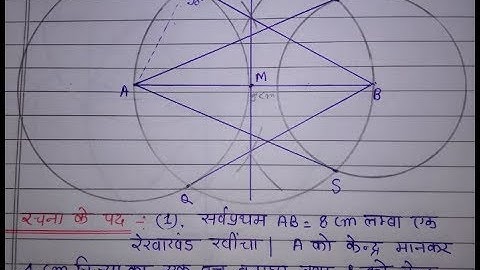 A
M
B
8cm
Q
S
रचना के पद :- (1). सर्वप्रथम AB = 8 cm लम्बा एक
रेखाखंड खींचा | A को केन्द्र मानकर